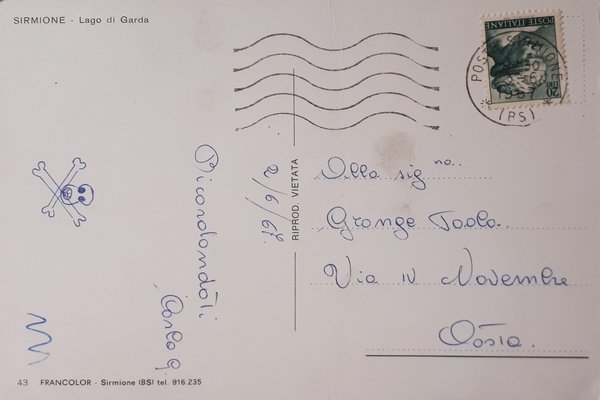 SIRMIONE - Lago di Garda
POSTE ITALIANE
L. 20
POSTE SIRMIONE
1967
(BS)
Ricordandoti
Carla G.
2/6/67.
RIPROD. VIETATA
Alla sig.na
Grange Paola.
Via IV Novembre
Aosta.
43 FRANCOLOR - Sirmione (BS) tel. 916.235